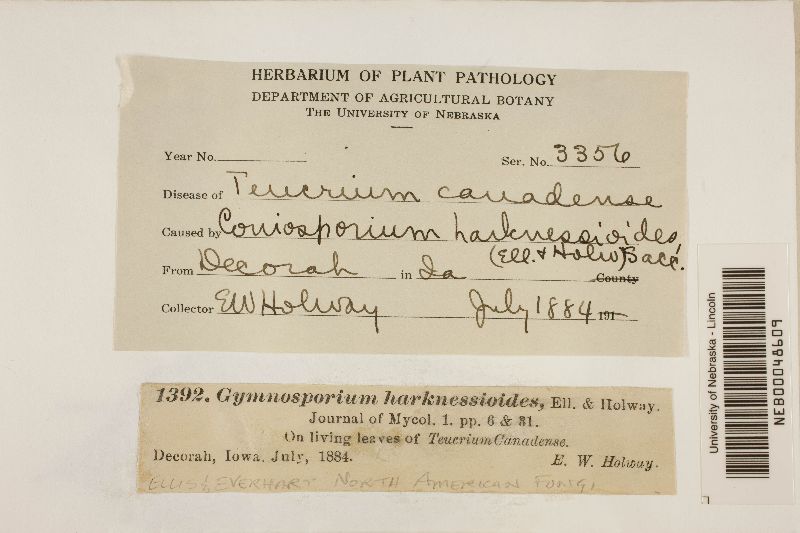 HERBARIUM OF PLANT PATHOLOGY
DEPARTMENT OF AGRICULTURAL BOTANY
THE UNIVERSITY OF NEBRASKA
Year No.
Ser. No. 3356
Disease of Teucrium canadense
Caused by Coniosporium harknessioides
(Ell. & Holw) Sacc.
From Decorah in Ia County
Collector EW Holway July 1884 191
1392. Gymnosporium harknessioides, Ell. & Holway.
Journal of Mycol. 1. pp. 6 & 31.
On living leaves of Teucrium Canadense.
Decorah, Iowa. July, 1884. E. W. Holway.
ELLIS & EVERHART NORTH AMERICAN FUNGI
University of Nebraska - Lincoln
NEB00048609